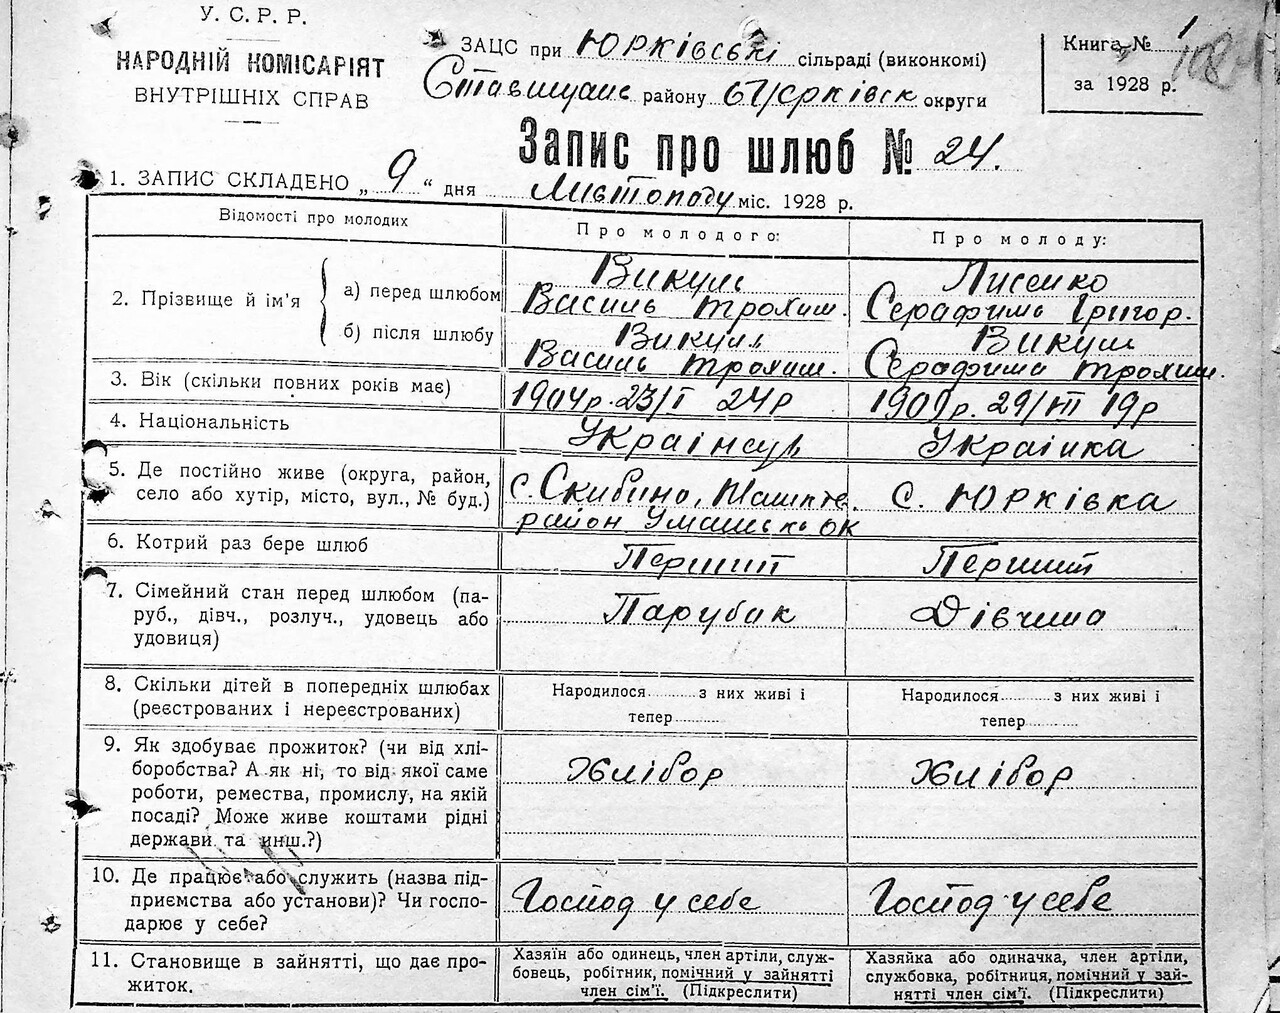 У. С. Р. Р.
НАРОДНІЙ КОМІСАРІЯТ
ВНУТРІШНІХ СПРАВ
ЗАЦС при Юрківські сільраді (виконкомі)
району округи
Книга №
за 1928 р.
Запис про шлюб № 24.
1. ЗАПИС СКЛАДЕНО „ 9 “ дня Листопаду міс. 1928 р.
Відомості про молодих
Про молодого:
Про молоду:
2. Прізвище й ім'я
а) перед шлюбом
Викуль
Василь Трохим.
Лисенко
Серафима Григор.
б) після шлюбу
Викуль
Василь Трохим.
Викуль
Серафима Трохим.
3. Вік (скільки повних років має)
1904р. 23/I 24р
1909р. 29/VII 19р
4. Національність
Українець
Українка
5. Де постійно живе (округа, район,
село або хутір, місто, вул., № буд.)
с. Скибино,
район Уманськ ок
с. Юрківка
6. Котрий раз бере шлюб
Перший
Перший
7. Сімейний стан перед шлюбом (па-
руб., дівч., розлуч., удовець або
удовиця)
Парубак
Дівчина
8. Скільки дітей в попередніх шлюбах
(реєстрованих і нереєстрованих)
Народилося з них живі і
тепер
Народилося з них живі і
тепер
9. Як здобуває прожиток? (чи від хлі-
боробства? А як ні, то від якої саме
роботи, ремества, промислу, на якій
посаді? Може живе коштами рідні
держави та инш.?)
Хлібор
Хлібор
10. Де працює або служить (назва під-
приємства або установи)? Чи госпо-
дарює у себе?
Господ у себе
Господ у себе
11. Становище в зайнятті, що дає про-
житок.
Хазяїн або одинець, член артіли, служ-
бовець, робітник, помічний у зайнятті
член сім'ї. (Підкреслити)
Хазяйка або одиначка, член артіли,
службовка, робітниця, помічний у зай-
нятті член сім'ї. (Підкреслити)